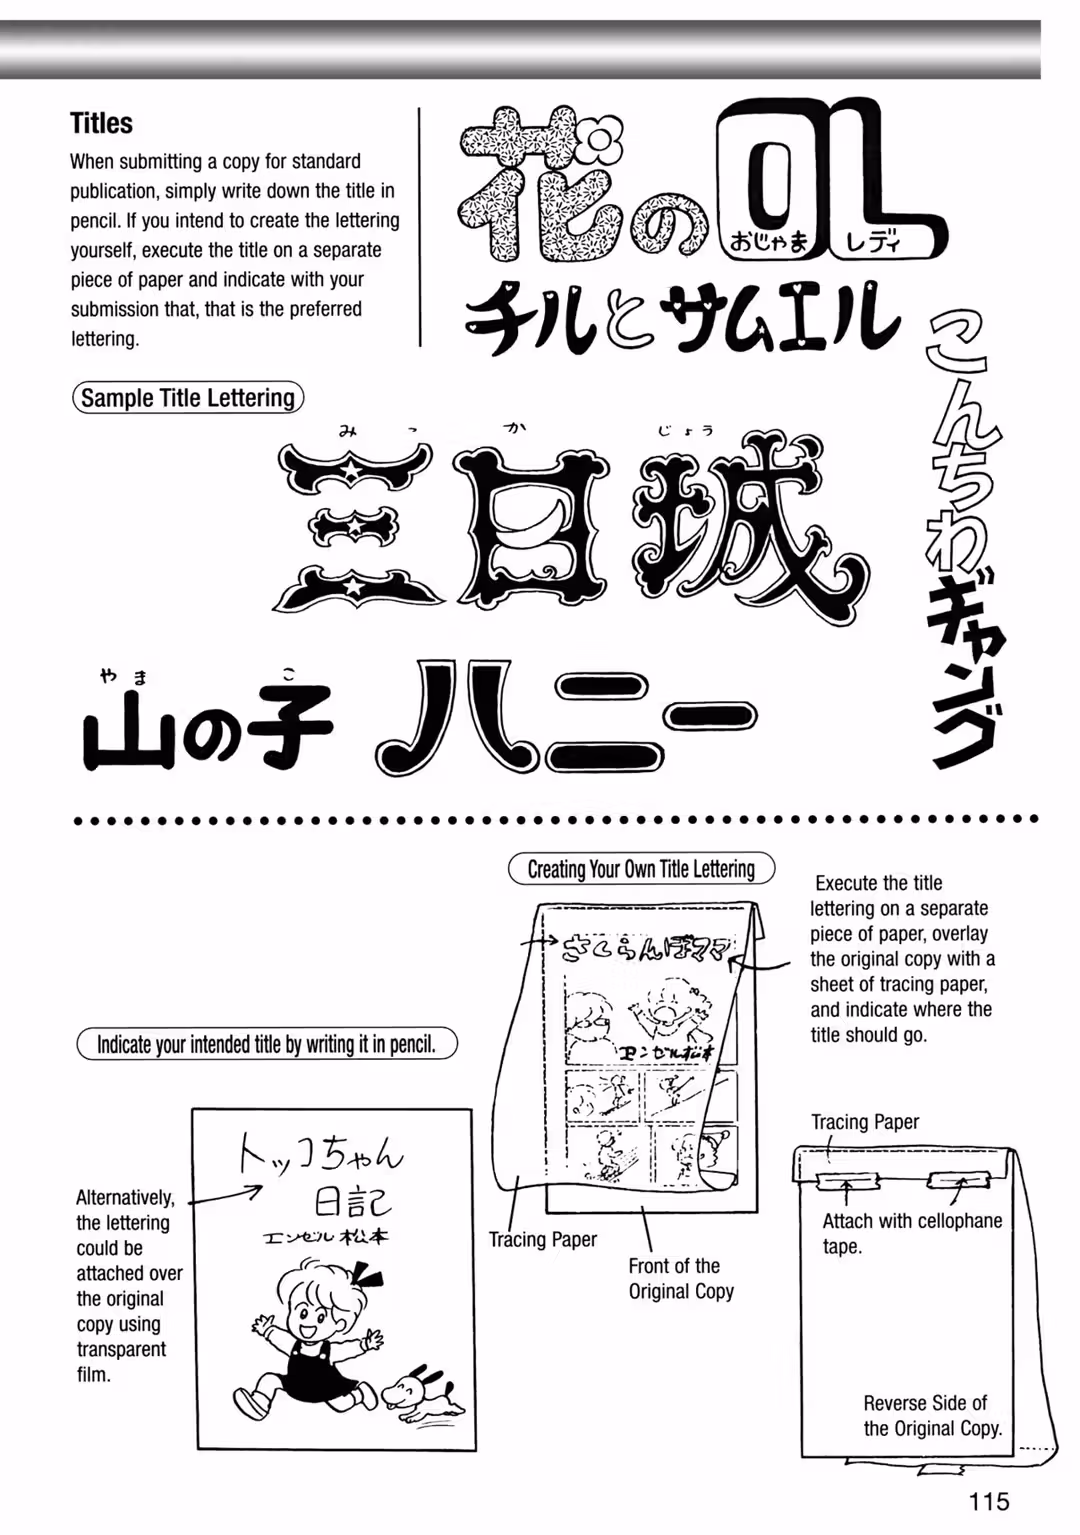 Titles
When submitting a copy for standard
publication, simply write down the title in
pencil. If you intend to create the lettering
yourself, execute the title on a separate
piece of paper and indicate with your
submission that, that is the preferred
lettering.
花のOL
おじゃま レディ
チルとサムエル
こんちわギャング
Sample Title Lettering
みっ か じょう
三日城
やま こ
山の子
ハニー
Creating Your Own Title Lettering
Execute the title
lettering on a separate
piece of paper, overlay
the original copy with a
sheet of tracing paper,
and indicate where the
title should go.
さくらんぼママ
エンゼル松本
Tracing Paper
Front of the
Original Copy
Indicate your intended title by writing it in pencil.
Alternatively,
the lettering
could be
attached over
the original
copy using
transparent
film.
トッコちゃん
日記
エンゼル松本
Tracing Paper
Attach with cellophane
tape.
Reverse Side of
the Original Copy.
115